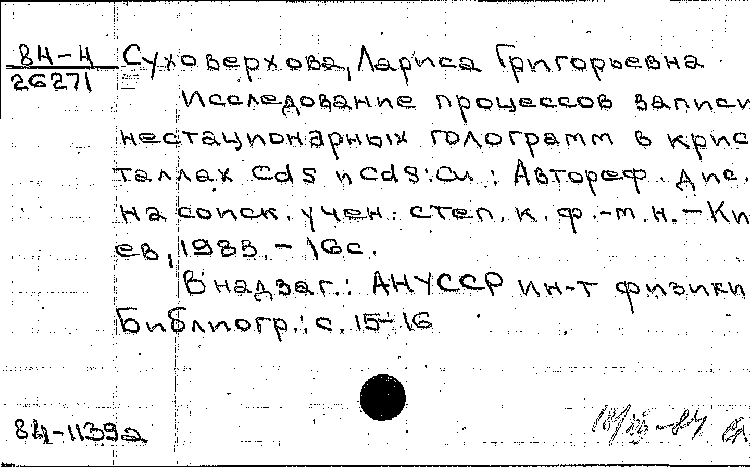 84-4
26271
Суховерхова, Лариса Григорьевна
Исследование процессов записи
нестационарных голограмм в крис
таллах CdS и CdS:Cu : Автореф. дис.
на соиск. учен. степ. к. ф.-м. н. - Ки
ев, 1983. - 16с.
В надзаг.: АН УССР ин-т физики
Библиогр.: с. 15-16
84-11392